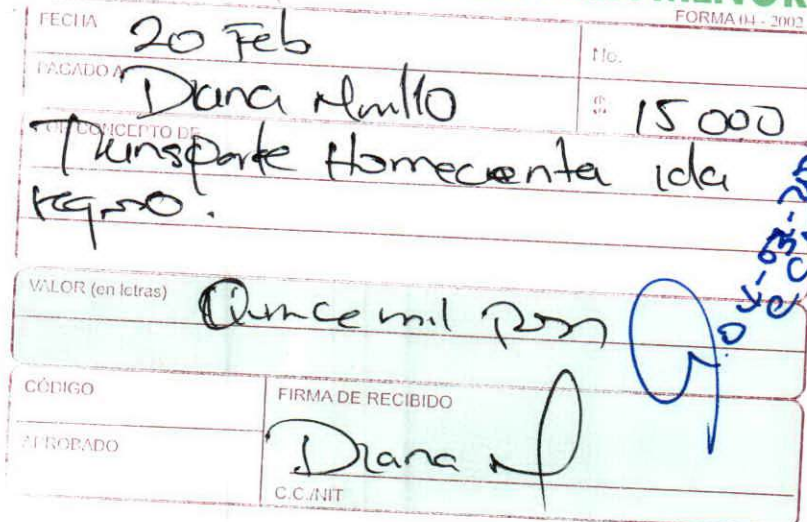 MENOR
FORMA 04 - 2002
FECHA 20 Feb No.
PAGADO A Diana Murillo $ 15 000
POR CONCEPTO DE
Transporte Homecenter ida
regreso.
VALOR (en letras) Quince mil
CÓDIGO FIRMA DE RECIBIDO
APROBADO Diana M
C.C./NIT